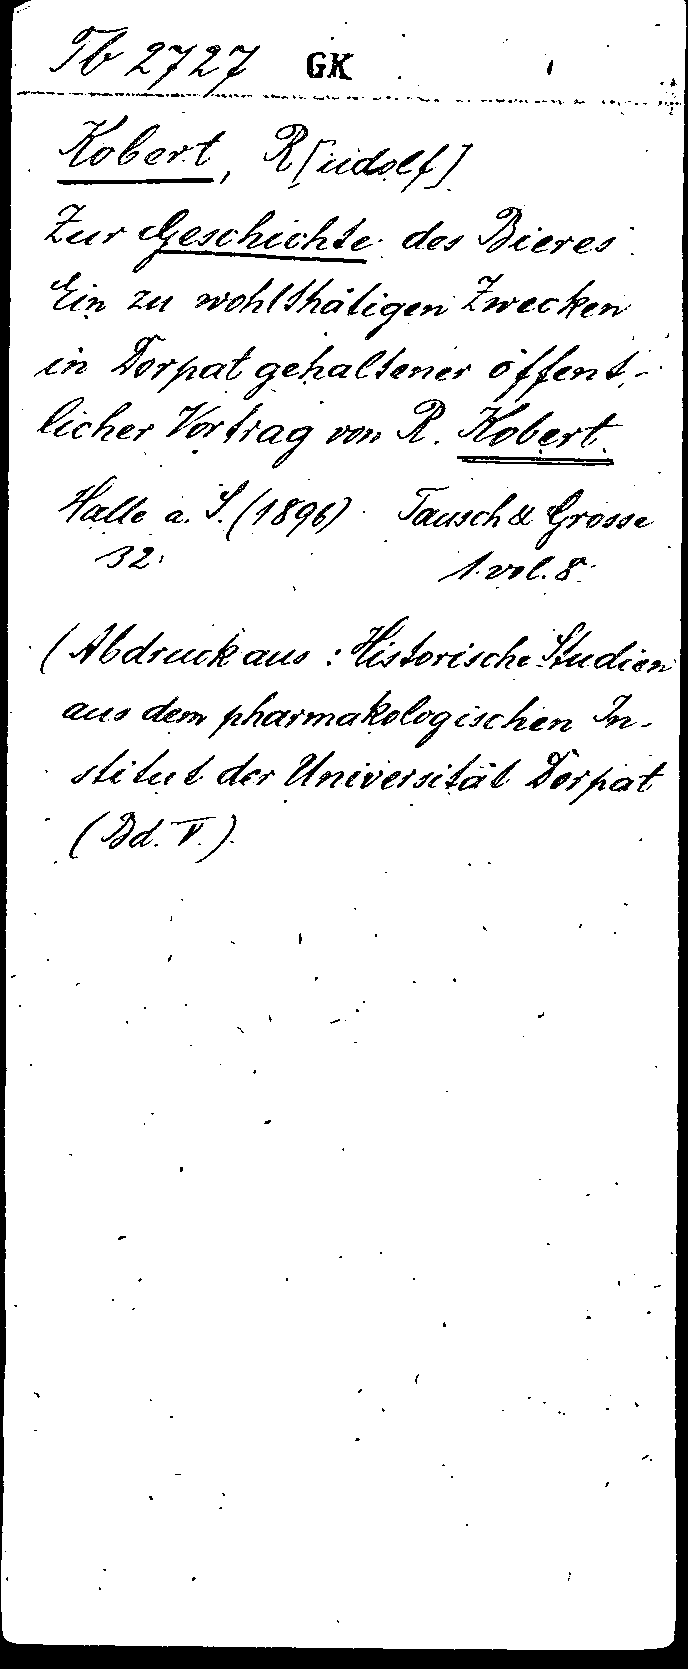 Tb 2727 GK
Kobert, R[udolf]
Zur Geschichte des Bieres
Ein zu wohlthätigen Zwecken
in Dorpat gehaltener öffent-
licher Vortrag von R. Kobert.
Halle a. S. (1896) Tausch & Grosse
32. 1 vol. 8.
(Abdruck aus: Historische Studien
aus dem pharmakologischen In-
stitut der Universität Dorpat
(Bd. V.)